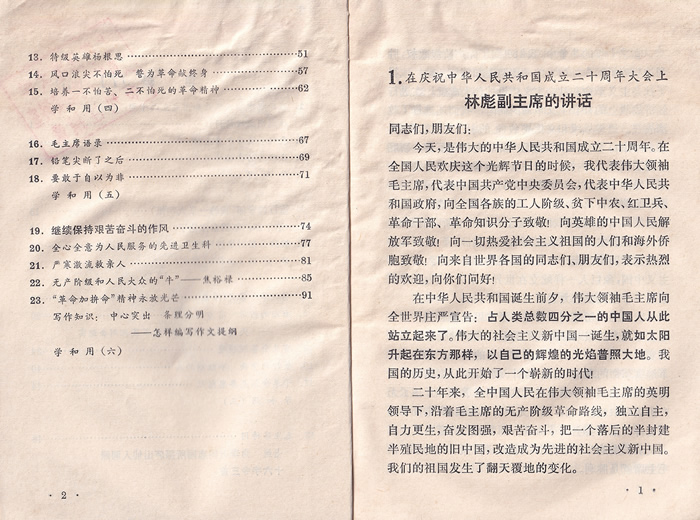 13. 特级英雄杨根思……51
14. 风口浪尖不怕死 誓为革命献终身……57
15. 培养一不怕苦、二不怕死的革命精神……62
学和用（四）
16. 毛主席语录……67
17. 铅笔尖断了之后……69
18. 要敢于自以为非……71
学和用（五）
19. 继续保持艰苦奋斗的作风……74
20. 全心全意为人民服务的先进卫生科……77
21. 严寒激流救亲人……81
22. 无产阶级和人民大众的“牛”——焦裕禄……85
23. “革命加拚命”精神永放光芒……91
写作知识：中心突出 条理分明
——怎样编写作文提纲
学和用（六）
· 2 ·
1. 在庆祝中华人民共和国成立二十周年大会上
林彪副主席的讲话
同志们，朋友们：
今天，是伟大的中华人民共和国成立二十周年。在
全国人民欢庆这个光辉节日的时候，我代表伟大领袖
毛主席，代表中国共产党中央委员会，代表中华人民共
和国政府，向全国各族的工人阶级、贫下中农、红卫兵、
革命干部、革命知识分子致敬！向英雄的中国人民解
放军致敬！向一切热爱社会主义祖国的人们和海外侨
胞致敬！向来自世界各国的同志们、朋友们，表示热烈
的欢迎，向你们问好！
在中华人民共和国诞生前夕，伟大领袖毛主席向
全世界庄严宣告：占人类总数四分之一的中国人从此
站立起来了。伟大的社会主义新中国一诞生，就如太阳
升起在东方那样，以自己的辉煌的光焰普照大地。我
国的历史，从此开始了一个崭新的时代！
二十年来，全中国人民在伟大领袖毛主席的英明
领导下，沿着毛主席的无产阶级革命路线，独立自主，
自力更生，奋发图强，艰苦奋斗，把一个落后的半封建
半殖民地的旧中国，改造成为先进的社会主义新中国。
我们的祖国发生了翻天覆地的变化。
· 1 ·